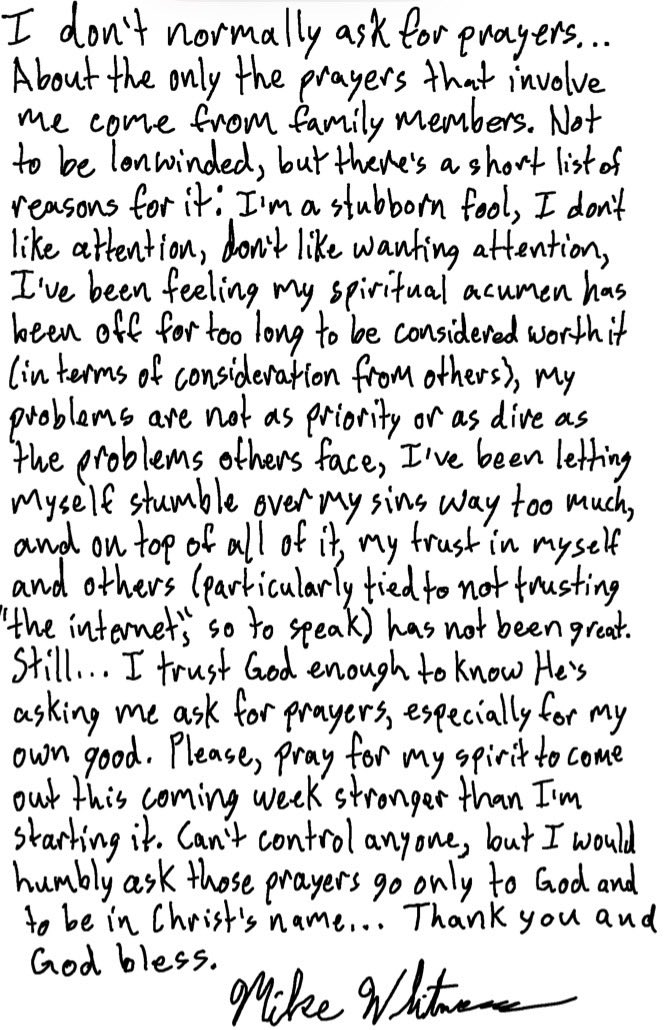 I don't normally ask for prayers...
About the only the prayers that involve
me come from family members. Not
to be lonwinded, but there's a short list of
reasons for it: I'm a stubborn fool, I don't
like attention, don't like wanting attention,
I've been feeling my spiritual acumen has
been off for too long to be considered worth it
(in terms of consideration from others), my
problems are not as priority or as dire as
the problems others face, I've been letting
myself stumble over my sins way too much,
and on top of all of it, my trust in myself
and others (particularly tied to not trusting
"the internet", so to speak) has not been great.
Still... I trust God enough to know He's
asking me ask for prayers, especially for my
own good. Please, pray for my spirit to come
out this coming week stronger than I'm
starting it. Can't control anyone, but I would
humbly ask those prayers go only to God and
to be in Christ's name... Thank you and
God bless.
Mike